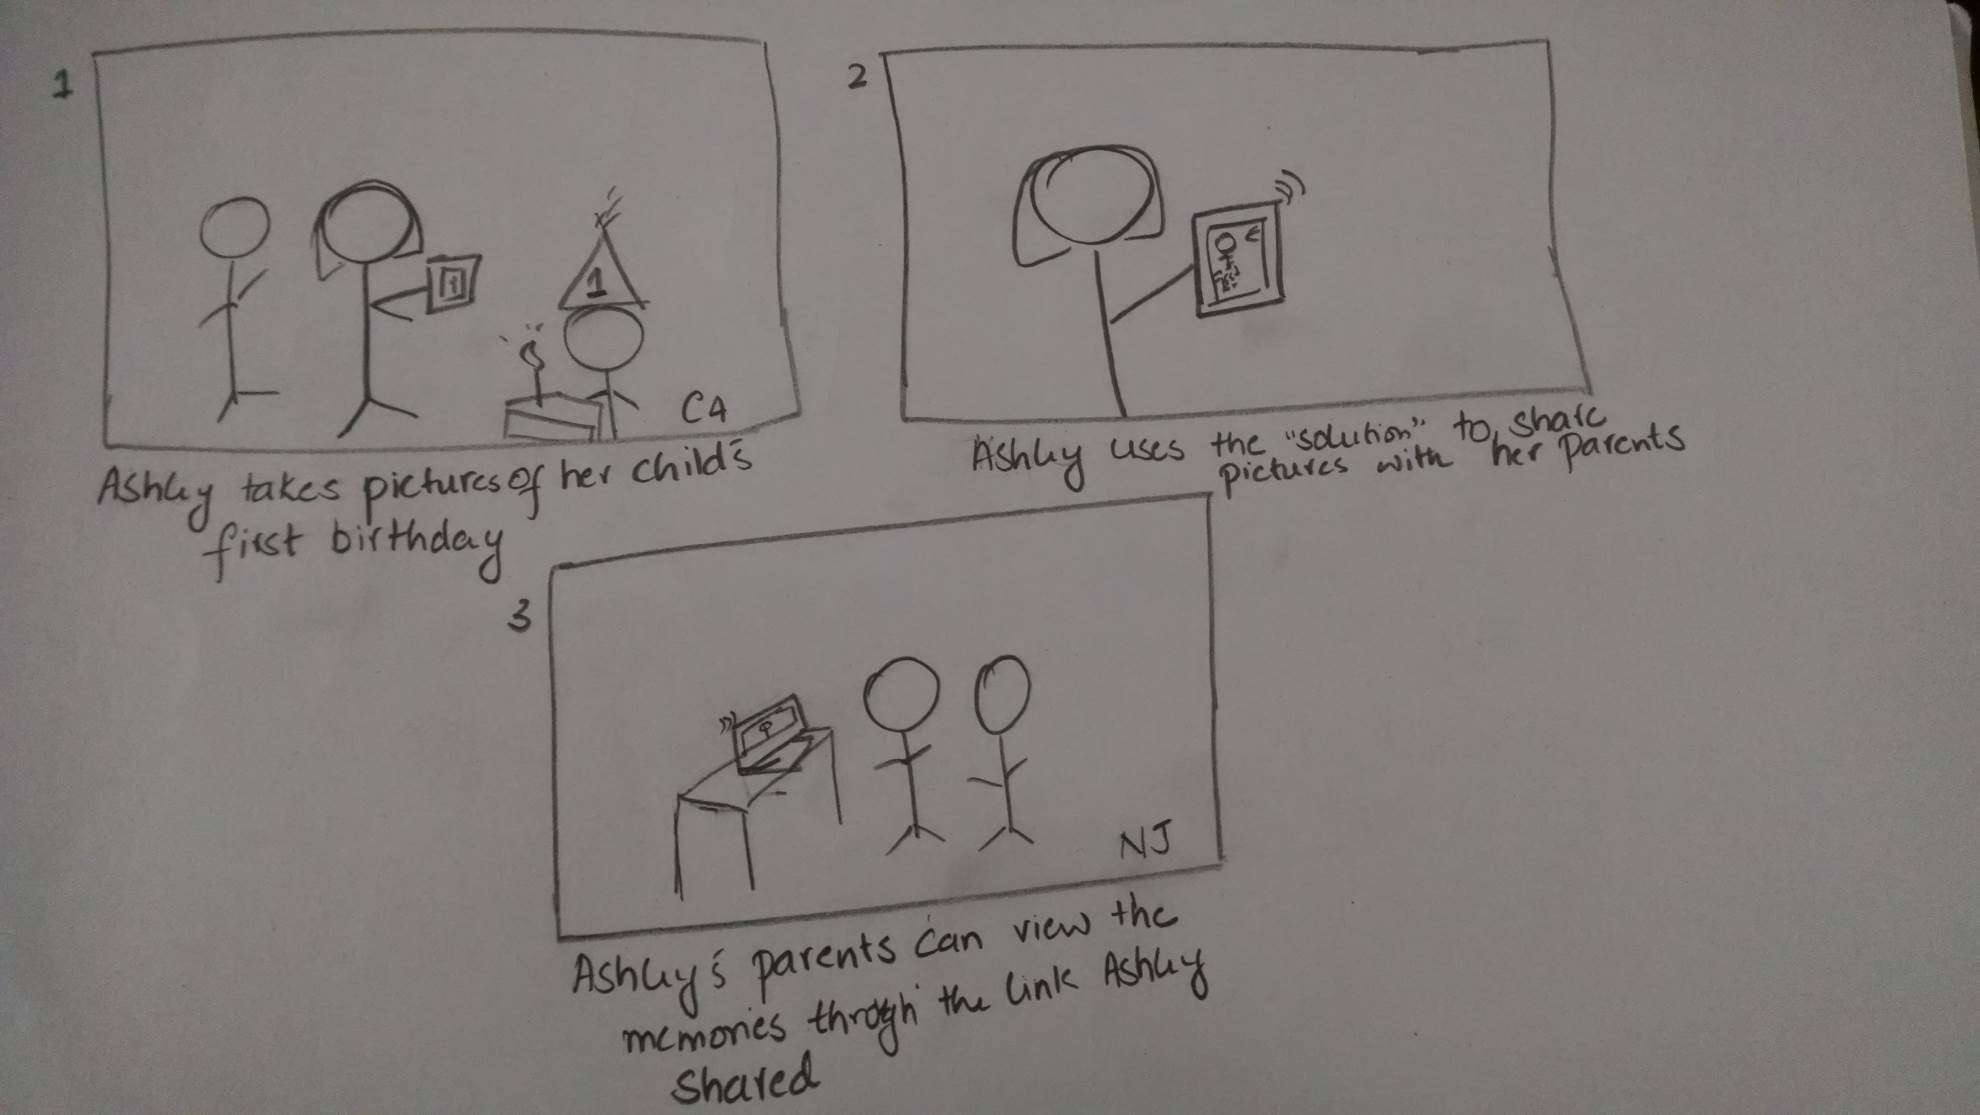 1
1
CA
Ashley takes pictures of her child's
first birthday
2
Ashley uses the "solution" to share
pictures with her parents
3
NJ
Ashley's parents can view the
memories throgh the link Ashley
shared